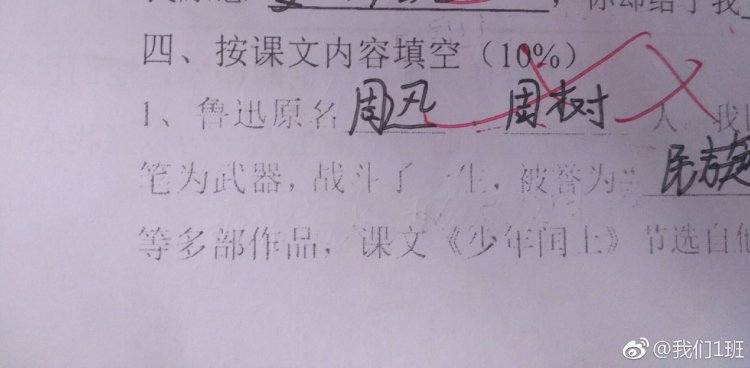 ，你却给了我
四、按课文内容填空（10%）
1、鲁迅原名周迅 . 周树 人，我国
笔为武器，战斗了一生，被誉为“民族
等多部作品，课文《少年闰土》节选自他
@我们1班